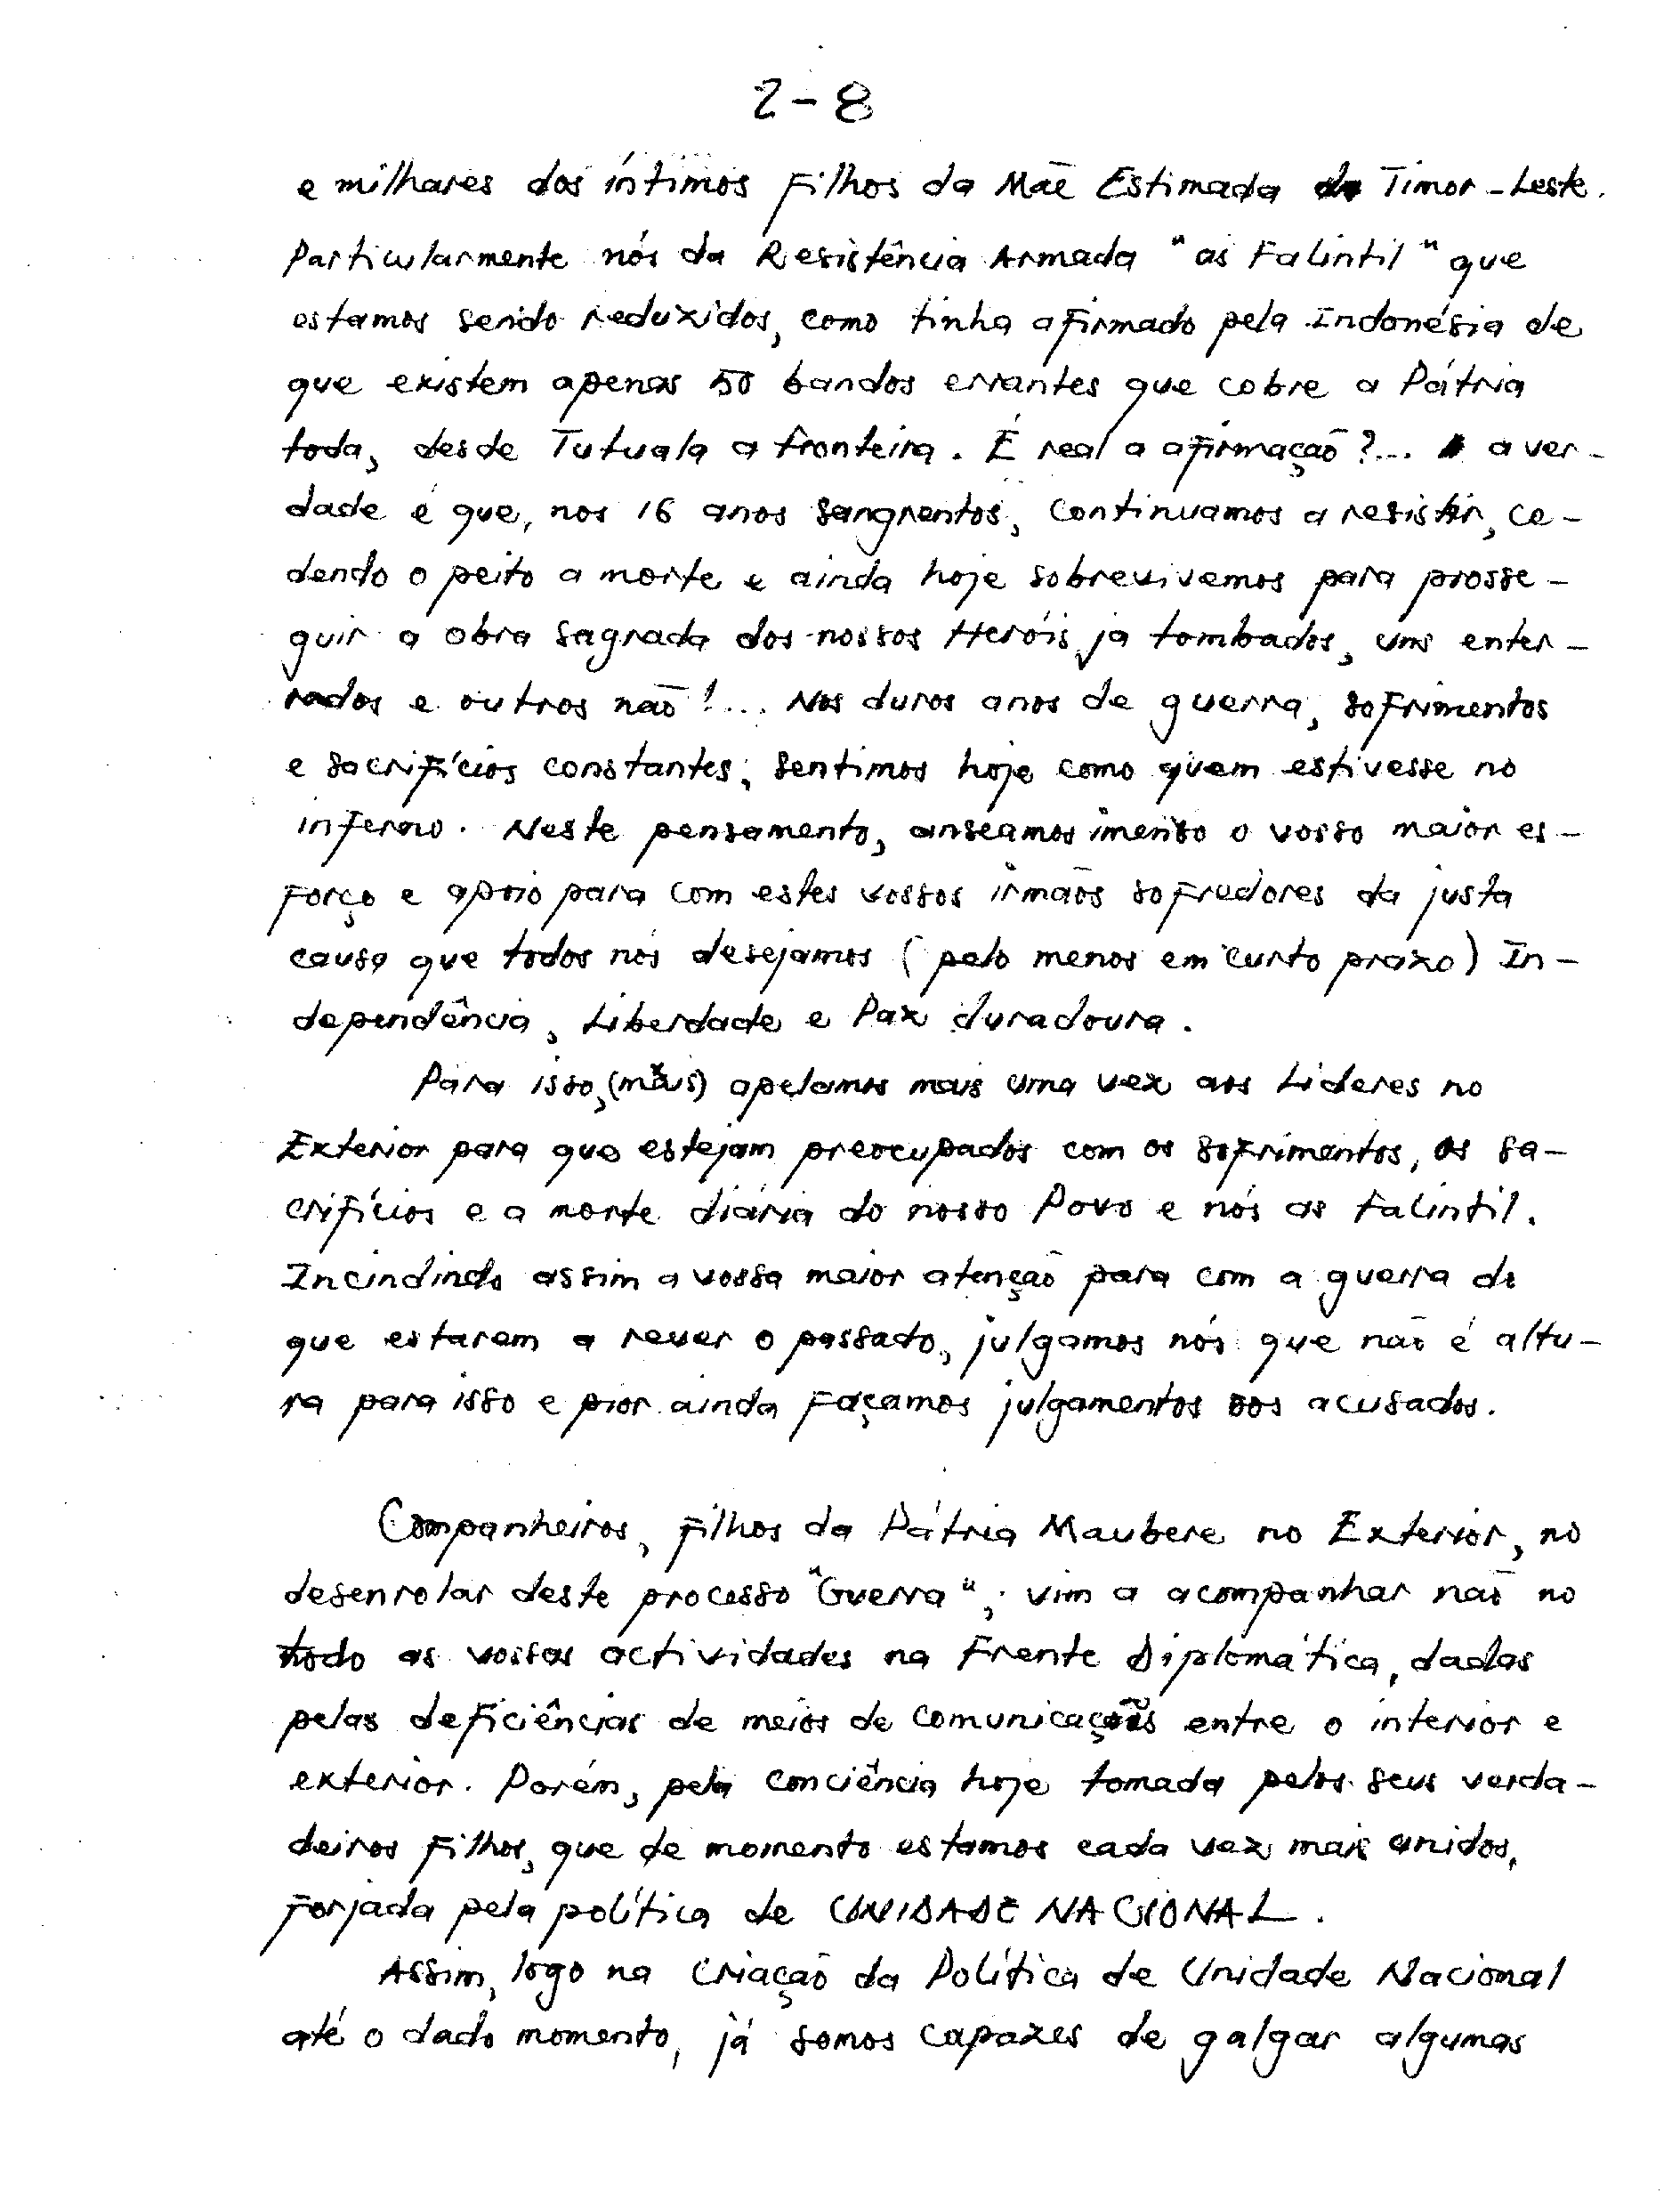 2-8
e milhares dos íntimos filhos da Mãe Estimada de Timor-Leste.
Particularmente nós da Resistência Armada "as Falintil" que
estamos sendo reduzidos, como tinha afirmado pela Indonésia de
que existem apenas 50 bandos errantes que cobre a Pátria
toda, desde Tutuala a fronteira. É real a afirmação?... a ver-
dade é que, nos 16 anos sangrentos, continuamos a resistir, ce-
dendo o peito a morte e ainda hoje sobrevivemos para prosse-
guir a obra sagrada dos nossos Heróis já tombados, uns enter-
rados e outros não!... Nos duros anos de guerra, sofrimentos
e sacrifícios constantes, sentimos hoje como quem estivesse no
inferno. Neste pensamento, anseamos imenso o vosso maior es-
forço e apoio para com estes vossos irmãos sofredores da justa
causa que todos nós desejamos (pelo menos em curto prazo) In-
dependência, Liberdade e Paz duradoura.
Para isso, (mais) apelamos mais uma vez aos Lideres no
Exterior para que estejam preocupados com os sofrimentos, os sa-
crifícios e a morte diária do nosso Povo e nós as Falintil.
Incindindo assim a vossa maior atenção para com a guerra de
que estarem a rever o passado, julgamos nós que não é altu-
ra para isso e pior ainda façamos julgamentos aos acusados.
Companheiros, filhos da Pátria Maubere no Exterior, no
desenrolar deste processo "Guerra", vim a acompanhar não no
todo as vossas actividades na Frente Diplomática, dadas
pelas deficiências de meios de comunicações entre o interior e
exterior. Porém, pela conciência hoje tomada pelos seus verda-
deiros filhos, que de momento estamos cada vez mais unidos,
forjada pela política de UNIDADE NACIONAL.
Assim, logo na criação da Política de Unidade Nacional
até o dado momento, já somos capazes de galgar algumas